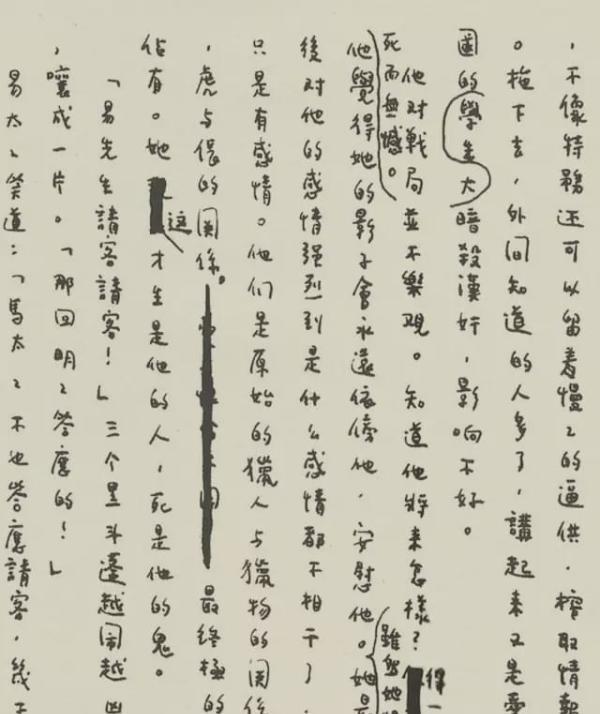 ，不像特務还可以留着慢〻的逼供，榨取情報
。拖下去，外间知道的人多了，講起来又是愛
國的學生大暗殺漢奸，影响不好。
他对戰局並不樂观。知道他将来怎樣？得一
死而無憾。
他覺得她的影子會永遠依傍他，安慰他。雖然她恨
她最
後对他的感情强烈到是什么感情都不相干了，
只是有感情。他们是原始的獵人与獵物的関係
，虎与伥的関係。最终極的
佔有。她这才生是他的人，死是他的鬼。
「易先生請客請客！」三个黑斗蓬越闹越凶
，嚷成一片。「那回明〻答應的！」
易太〻笑道：「馬太〻不也答應請客，幾